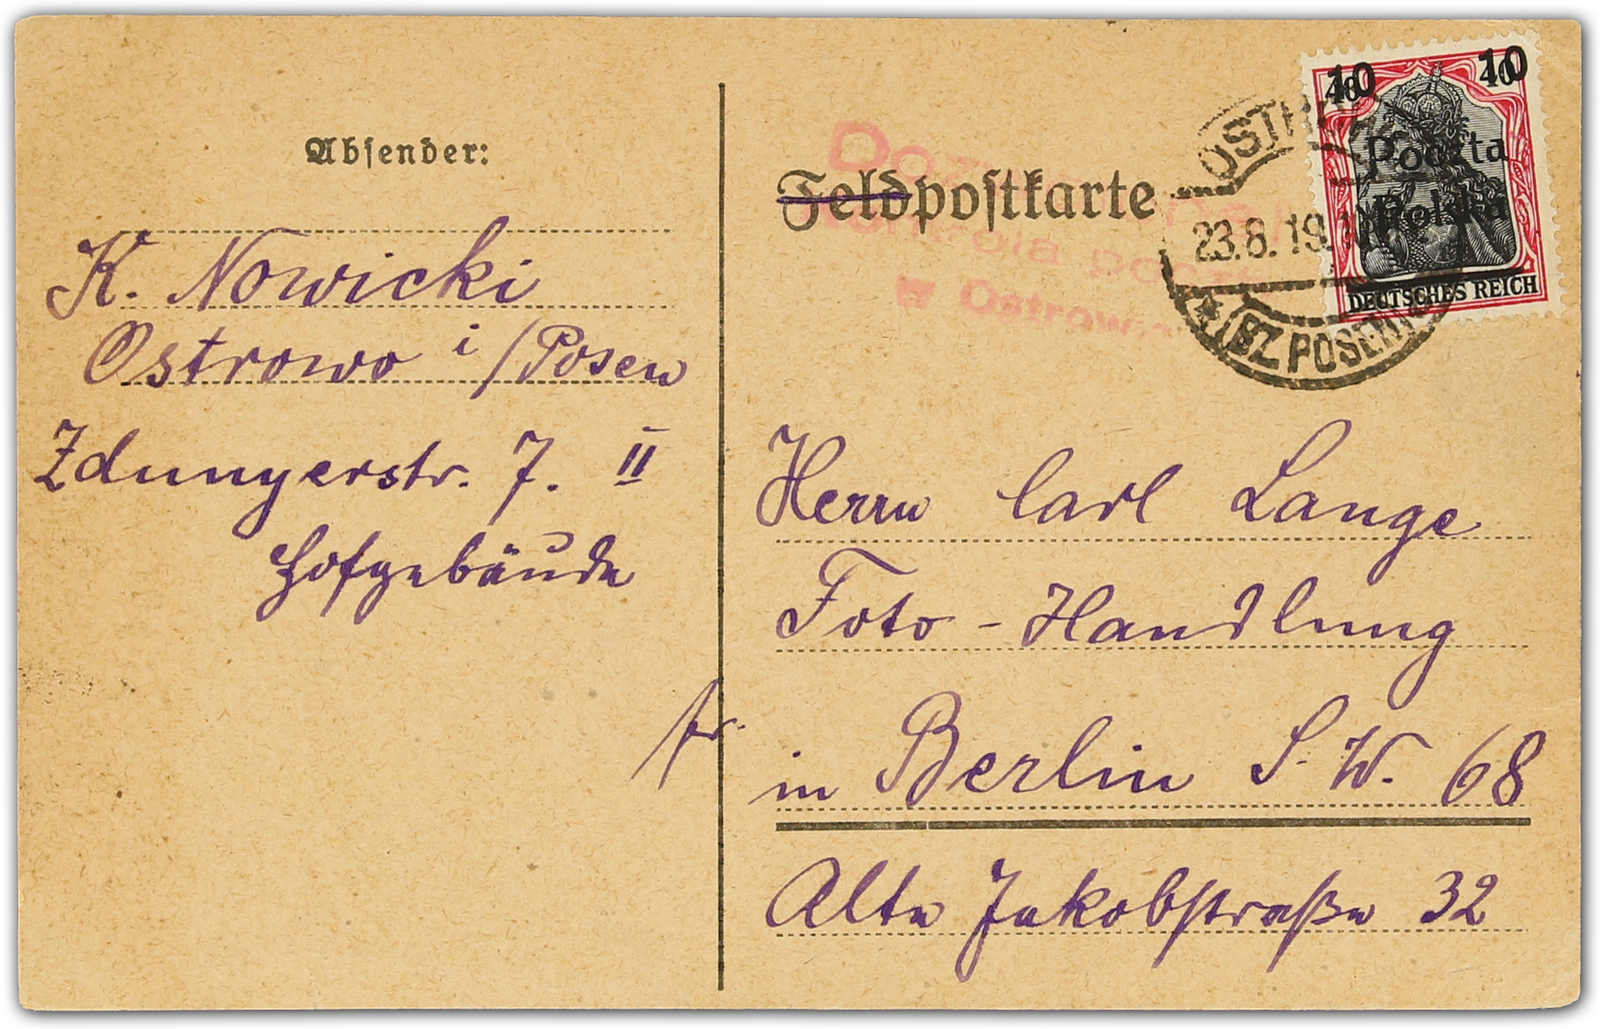 Absender:
K. Nowicki
Ostrowo i/Posen
Zdunyerstr. 7. II
Hofgebäude
fr.
Feldpostkarte
kontrola
w Ostrow
10 10
40 40
Poczta
Polska
DEUTSCHES REICH
23.8.19.
(BZ. POSEN)
Herrn Carl Lange
Foto-Handlung
in Berlin S.W. 68
Alte Jakobstraße 32